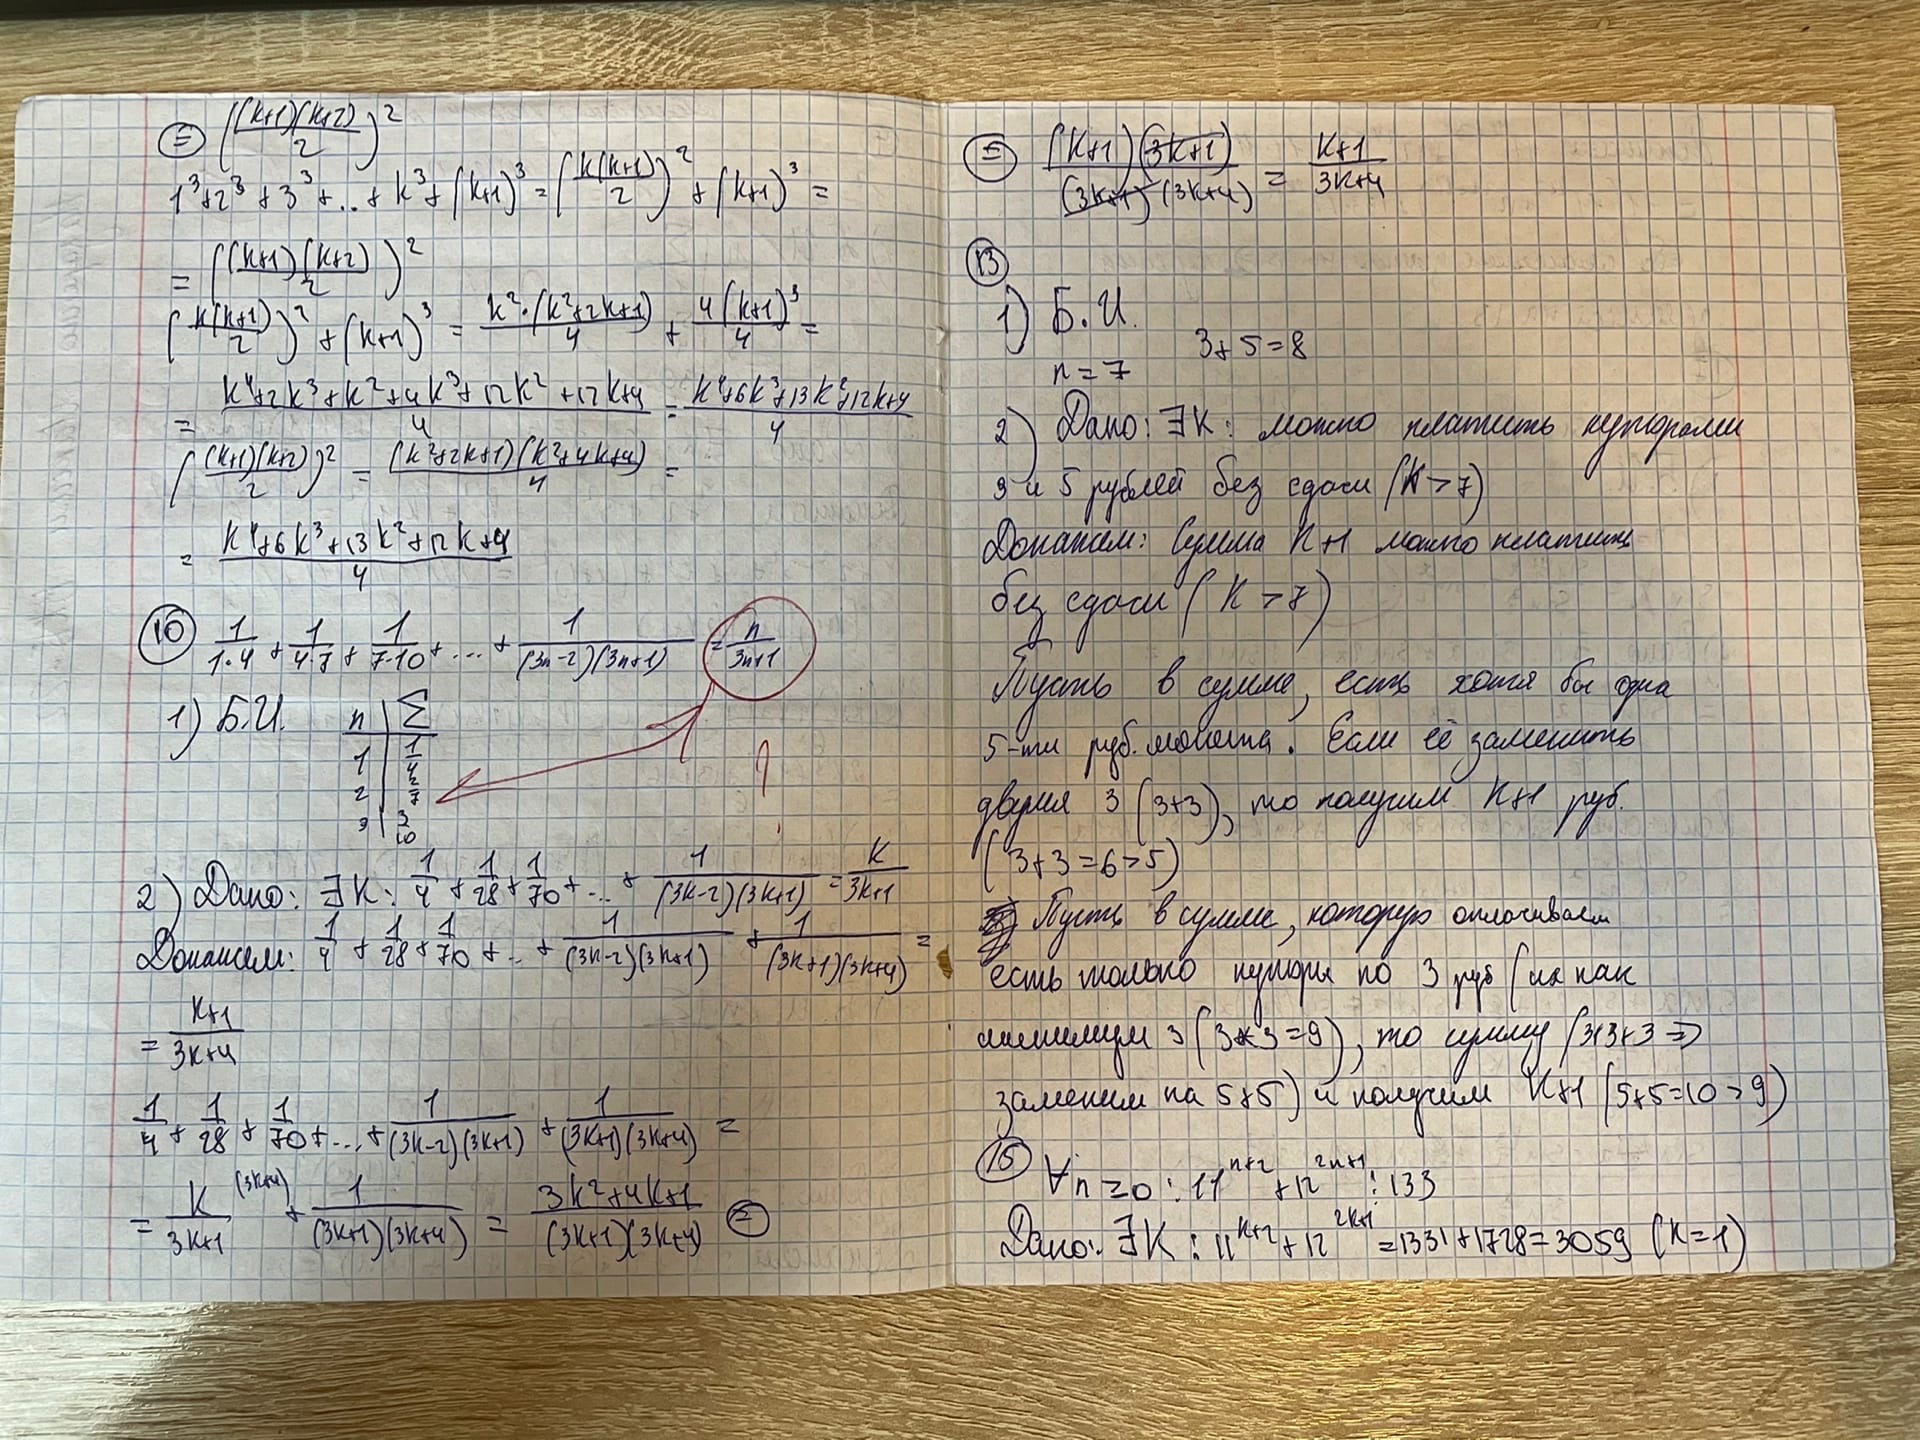 = ((k+1)(k+2)/2)²
1³+2³+3³+...+k³+(k+1)³=(k(k+1)/2)²+(k+1)³=
=((k+1)(k+2)/2)²
(k(k+1)/2)²+(k+1)³=k²·(k²+2k+1)/4+4(k+1)³/4=
=(k⁴+2k³+k²+4k³+12k²+12k+4)/4=(k⁴+6k³+13k²+12k+4)/4
((k+1)(k+2)/2)²=(k²+2k+1)(k²+4k+4)/4=
=(k⁴+6k³+13k²+12k+4)/4
10 1/(1·4)+1/(4·7)+1/(7·10)+...+1/((3n-2)(3n+1))=n/(3n+1)
1) Б.И. n | Σ
1 | 1/4
2 | 2/7
3 | 3/10
2) Дано: ∃K: 1/4+1/28+1/70+...+1/((3k-2)(3k+1))=k/(3k+1)
Докажем: 1/4+1/28+1/70+...+1/((3k-2)(3k+1))+1/((3k+1)(3k+4))=
=(k+1)/(3k+4)
1/4+1/28+1/70+...+1/((3k-2)(3k+1))+1/((3k+1)(3k+4))=
=k/(3k+1) (3k+4)+1/((3k+1)(3k+4))=(3k²+4k+1)/((3k+1)(3k+4)) =
= (k+1)(3k+1)/((3k+1)(3k+4))=(k+1)/(3k+4)
13
1) Б.И.
3+5=8
n=7
2) Дано: ∃K: можно платить купюрами
3 и 5 рублей без сдачи (K>7)
Докажем: Сумма K+1 можно платить
без сдачи (K>7)
Пусть в сумме, есть хотя бы одна
5-ти руб. монета. Если её заменить
двумя 3 (3+3), то получим K+1 руб.
(3+3=6>5)
Пусть в сумме, которую оплачиваем
есть только купюры по 3 руб (их как
минимум 3 (3*3=9), то сумму (3+3+3 ⇒
заменим на 5+5) и получим K+1 (5+5=10>9)
15 ∀n≥0: 11ⁿ⁺²+12²ⁿ⁺¹⋮133
Дано: ∃K: 11ᵏ⁺²+12²ᵏ⁺¹=1331+1728=3059 (K=1)